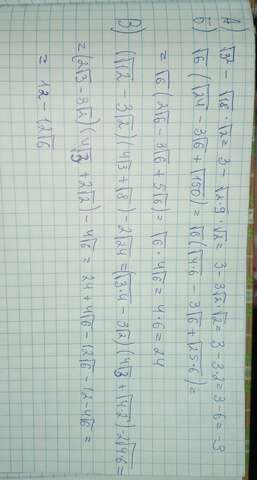 А) √3² - √18 · √2 = 3 - √2·9 · √2 = 3 - 3√2 · √2 = 3 - 3·2 = 3 - 6 = -3
Б) √6 (√24 - 3√6 + √150) = √6 (√4·6 - 3√6 + √25·6) =
= √6 (2√6 - 3√6 + 5√6) = √6 · 4√6 = 4·6 = 24
В) (√12 - 3√2)(4√3 + √8) - 2√24 = (√3·4 - 3√2)(4√3 + √4·2) - 2√4·6 =
= (2√3 - 3√2)(4√3 + 2√2) - 4√6 = 24 + 4√6 - 12√6 - 12 - 4√6 =
= 12 - 12√6